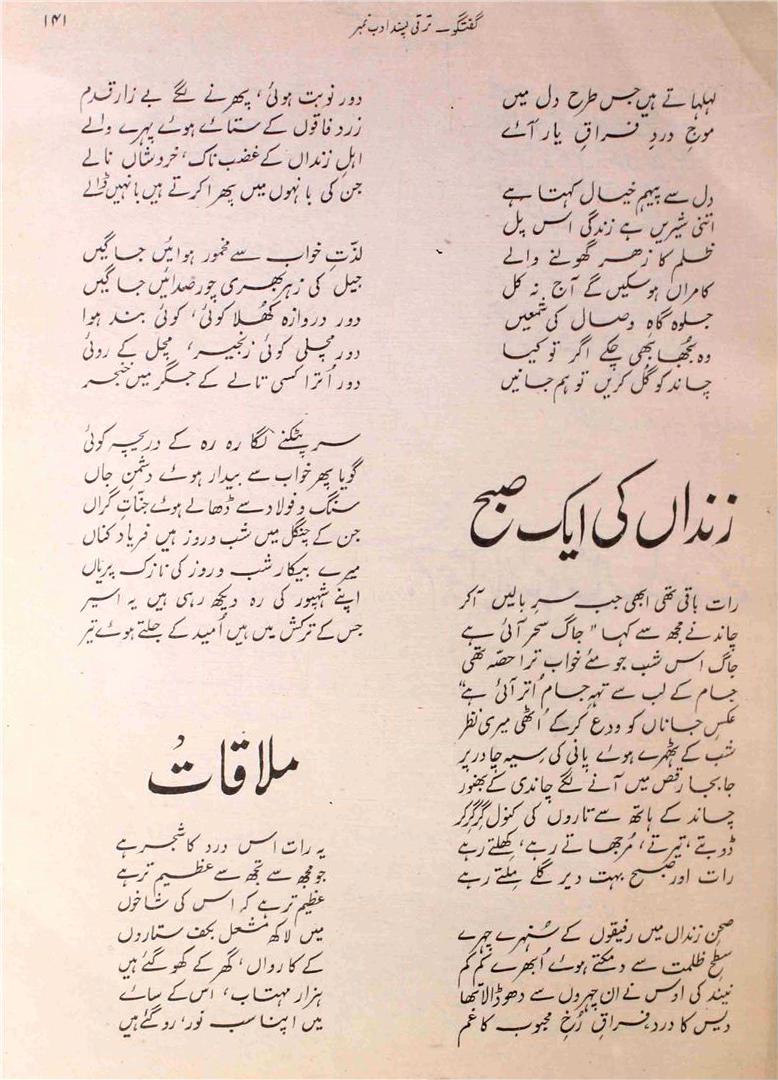 گفتگو۔ ترقی پسند ادب نمبر
۱۴۱
لہلہاتے ہیں جس طرح دل میں
موجِ دردِ فراقِ یار آئے
دل سے پیہم خیال کہتا ہے
اتنی شیریں ہے زندگی اس پل
ظلم کا زہر گھولنے والے
کامراں ہو سکیں گے آج نہ کل
جلوہ گاہِ وصال کی شمعیں
وہ بجھا بھی چکے اگر تو کیا
چاند کو گُل کریں تو ہم جانیں
زنداں کی ایک صبح
رات باقی تھی ابھی جب سرِ بالیں آکر
چاند نے مجھ سے کہا "جاگ سحر آئی ہے
جاگ اس شب جو مئے خواب ترا حصّہ تھی
جام کے لب سے تہہِ جام اُتر آئی ہے"
عکسِ جاناں کو ودع کرکے اُٹھی میری نظر
شب کے ٹھہرے ہوئے پانی کی سیہ چادر پر
جابجا رقص میں آنے لگے چاندی کے بھنور
چاند کے ہاتھ سے تاروں کی کنول گر گر کر
ڈوبتے، تیرتے، مُرجھاتے رہے، کھِلتے رہے
رات اور صبح بہت دیر گلے مِلتے رہے
صحنِ زنداں میں رفیقوں کے سُنہرے چہرے
سطحِ ظلمت سے دمکتے ہوئے اُبھرے کم کم
نیند کی اوس نے ان چہروں سے دھو ڈالا تھا
دیس کا درد، فراقِ رُخِ محبوب کا غم
دور نوبت ہوئی، پھرنے لگے بے زار قدم
زرد فاقوں کے ستائے ہوئے پہرے والے
اہلِ زنداں کے غضب ناک، خروشاں نالے
جن کی بانہوں میں پھرا کرتے ہیں بانہیں ڈالے
لذّتِ خواب سے مخمور ہوائیں جاگیں
جیل کی زہر بھری چور صدائیں جاگیں
دور دروازہ کھُلا کوئی، کوئی بند ہوا
دور مچلی کوئی زنجیر، مچل کے روئی
دور اُترا کسی تالے کے جگر میں خنجر
سر پٹکنے لگا رہ رہ کے دریچہ کوئی
گویا پھر خواب سے بیدار ہوئے دشمنِ جاں
سنگ و فولاد سے ڈھالے ہوئے جنّاتِ گراں
جن کے چنگل میں شب و روز ہیں فریاد کناں
میرے بیکار شب و روز کی نازک پریاں
اپنے شہپور کی رہ دیکھ رہی ہیں یہ اسیر
جس کے ترکش میں ہیں اُمید کے جلتے ہوئے تیر
ملاقات
یہ رات اس درد کا شجر ہے
جو مجھ سے تجھ سے عظیم تر ہے
عظیم تر ہے کہ اس کی شاخوں
میں لاکھ مشعل بکف ستاروں
کے کارواں، گھر کے کھو گئے ہیں
ہزار مہتاب، اس کے سائے
میں اپنا سب نور، رو گئے ہیں